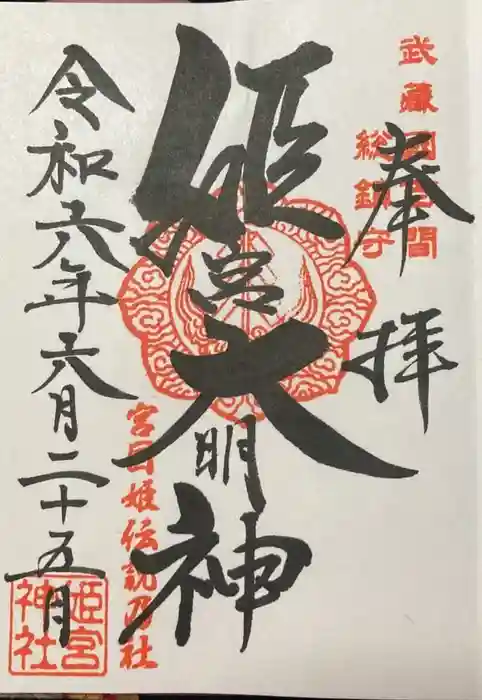 武藏國百間
総鎮守
奉拝
姫宮大明神
宮目姫伝説乃社
令和六年六月二十五日
姫宮
神社